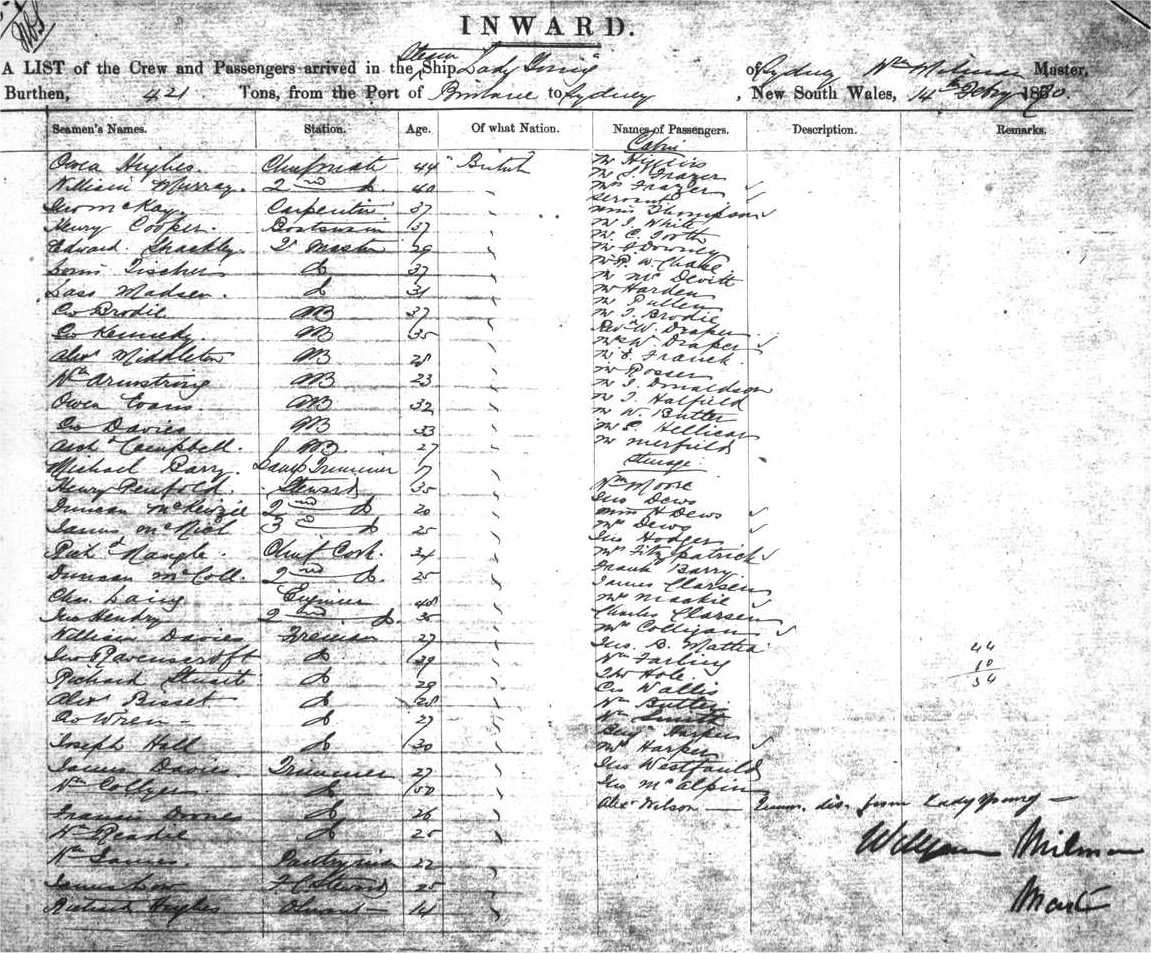 INWARD.
A LIST of the Crew and Passengers arrived in the Steam Ship Lady of Sydney Wm Milman Master,
Burthen, 421 Tons, from the Port of Brisbane to Sydney, New South Wales, 14th Feby 1870.
Seamen's Names. Station. Age. Of what Nation. Names of Passengers. Description. Remarks.
Cabin
Owen Hughes. Chief mate 44 British Mr Higgins
Mr Frazer
William Murray. 2nd do 40 " Mrs Frazer
Servant
Geo McKay Carpenter 37 " Miss Thompson
Henry Cooper. Boatswain 37 " Mr J. White
Mr C. Tooth
Edward Shackley 2r Master 29 " Mr Downey
Louis Fischer do 37 " Mr R. W. Chase
Mr McDevitt
Lass Madsen. do 31 " Mr Harden
Mr Pullen
Geo Brodie AB 37 " Mr J. Brodie
Revd W. Draper
Geo Kennedy AB 35 " Mrs W. Draper
Alexr Middleton AB 28 " Mr Franck
Mr Rosser
Wm Armstrong AB 23 " Mr J. Donaldson
Owen Evans. AB 32 " Mr J. Hatfield
Mr W. Butler
Geo Davies AB 33 " Mr E. Hellicar
Archd Campbell. AB 27 " Mr Merfield
Michael Barry Lamp Trimmer " Steerage
Henry Penfold. Steward 35 " Wm Moore
Jno Dews
Duncan McKenzie 2nd do 20 " Miss H Dews
James McNiel 3rd do 25 " Mrs Dews
Jno Hodger
Richd Nangle. Chief Cook. 34 " Mrs Fitzpatrick
Frank Barry
Duncan McColl. 2nd do. 25 " James Clarsen
Chas. Laing Engineer 48 " Mrs Mackie
Charles Clarsen
Jno Hendry 2nd do 30 " Mrs Colligan
William Davies Fireman 27 " Jno. B. Mattea
44
Jno Ravenscroft do 39 " Wm Farling
10
Richard Stuart do 29 " Thos Hole
54
Geo Wallis
Alexr Bisset do 28 " Wm Butler
Geo Wren do 27 " Wm Smith
Benj Harper
Joseph Hall do 30 " Mrs Harper
James Davies Trimmer 27 " Jno Westfauld
Wm Collyer do 50 " Jno McAlpin
Alexr Wilson — dis. from Lady Young —
Francis do 26 "
Wm Readie do 25 "
William Milman
Wm James. Pantryman 22 "
James Low F C Steward 25 "
Mast
Richard Hughes 14 "